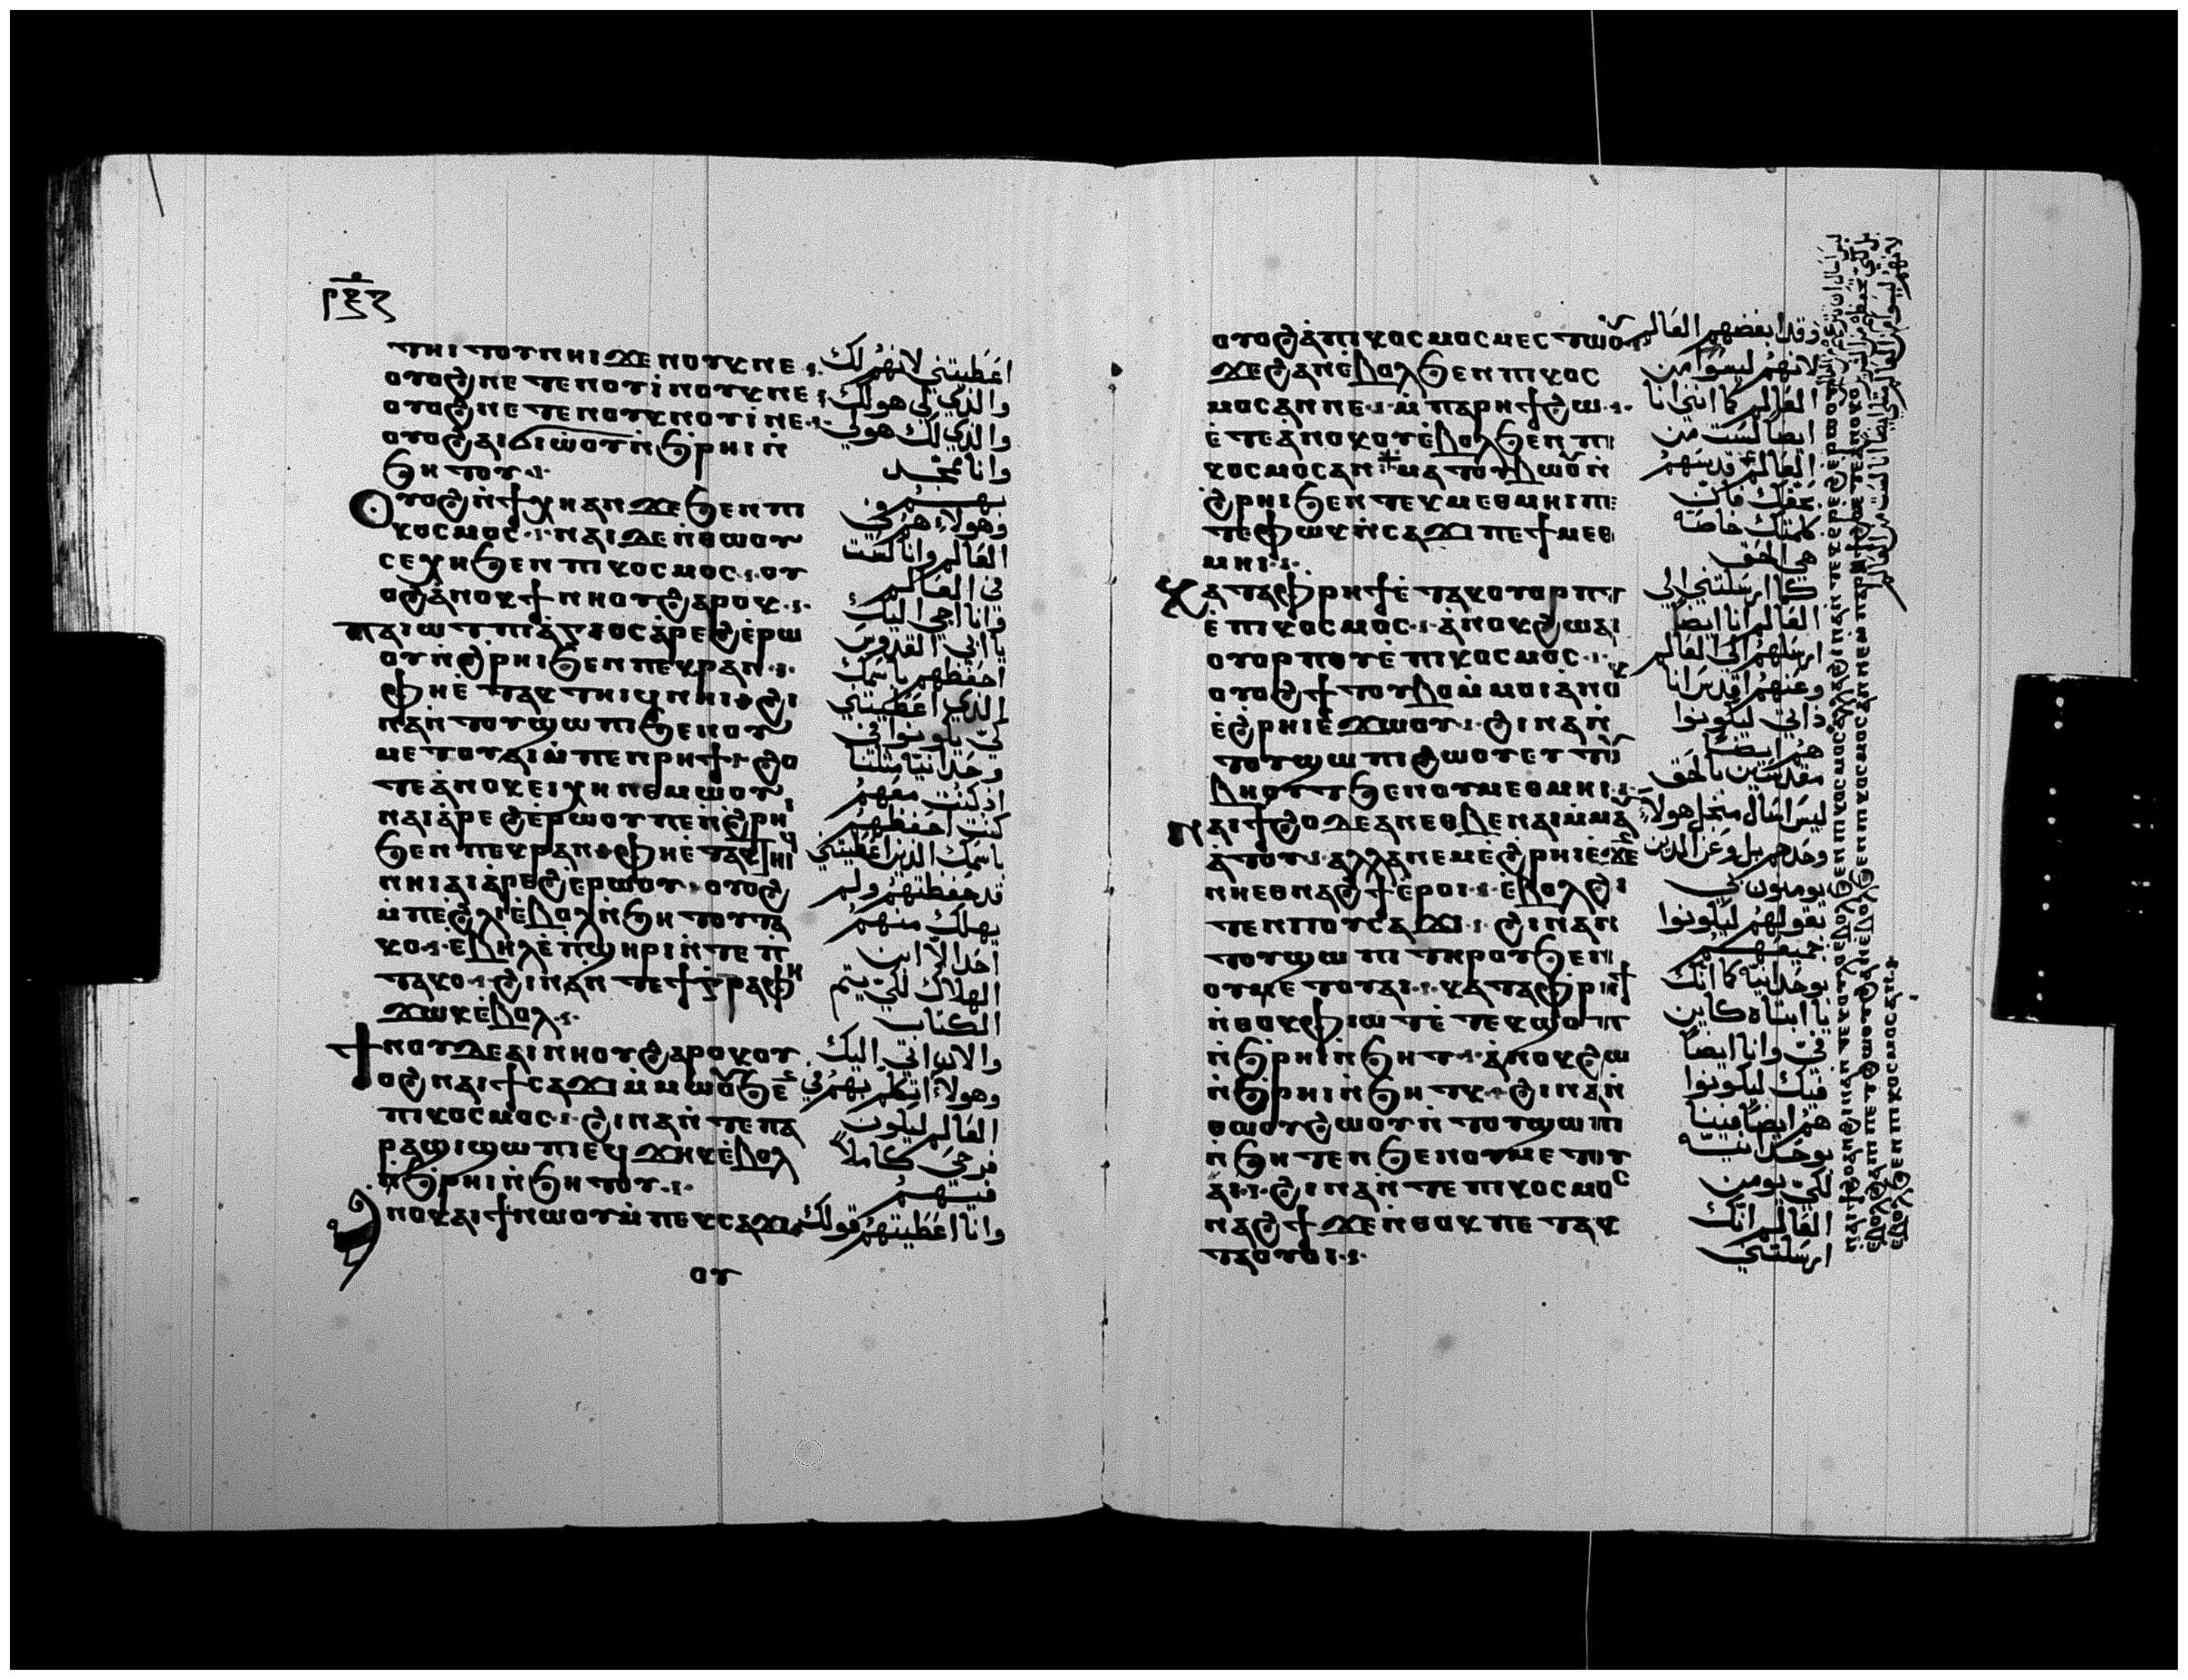 ⲣⲝⲍ
ⲧⲏⲓⲧⲟⲩⲛⲏⲓϫⲉⲛⲟⲩⲕⲛⲉ
ⲟⲩⲟϩⲛⲉⲧⲉⲛⲟⲩⲓ̀ⲛⲟⲩⲕⲛⲉ
ⲟⲩⲟϩⲛⲉⲧⲉⲛⲟⲩⲕⲛⲟⲩⲓ̀ⲛⲉ
ⲟⲩⲟϩⲁⲓϭⲓⲱ̀ⲟⲩⲛ̀ϧⲣⲏⲓⲛ̀
ϧⲏⲧⲟⲩ
ⲟⲩⲟϩⲛ̀ϯⲭⲏⲁⲛϫⲉϧⲉⲛⲡⲓ
ⲕⲟⲥⲙⲟⲥ ⲛⲁⲓⲇⲉⲛ̀ⲑⲱⲟⲩ
ⲥⲉⲭⲏϧⲉⲛⲡⲓⲕⲟⲥⲙⲟⲥ ⲟⲩ
ⲟϩⲁ̀ⲛⲟⲕϯⲛⲏⲟⲩϩⲁⲣⲟⲕ
ⲡⲁⲓⲱⲧⲡⲓⲁ̀ⲅⲓⲟⲥⲁ̀ⲣⲉϩⲉ̀ⲣⲱ
ⲟⲩⲛ̀ϩ̀ⲣⲏⲓϧⲉⲛⲡⲉⲕⲣⲁⲛ
ⲫⲏⲉ̀ⲧⲁⲕⲧⲏⲓϥⲛⲏⲓ ϩⲓ
ⲛⲁⲛ̀ⲧⲟⲩϣⲱⲡⲓϧⲉⲛⲟⲩ
ⲙⲉⲧⲟⲩⲁⲓⲙ̀ⲡⲉⲛⲣⲏϯ ϩⲟ
ⲧⲉⲁ̀ⲛⲟⲕⲉⲓⲭⲏⲛⲉⲙⲱⲟⲩ
ⲛⲁⲓⲁ̀ⲣⲉϩⲉ̀ⲣⲱⲟⲩⲡⲉⲛ̀ϩ̀ⲣⲏⲓ
ϧⲉⲛⲡⲉⲕⲣⲁⲛ ⲫⲏⲉ̀ⲧⲁⲕⲧⲏⲓϥ
ⲛⲏⲓⲁⲓⲁ̀ⲣⲉϩⲉ̀ⲣⲱⲟⲩ ⲟⲩⲟϩ
ⲙ̀ⲡⲉϩ̀ⲗⲓⲉ̀ⲃⲟⲗⲛ̀ϧⲏⲧⲟⲩⲧⲁ
ⲕⲟ ⲉ̀ⲃⲏⲗⲉ̀ⲡ̀ϣⲏⲣⲓⲛ̀ⲧⲉⲡ̀
ⲧⲁⲕⲟ ϩⲓⲛⲁⲛ̀ⲧⲉϯⲅ̀ⲣⲁⲫⲏ
ϫⲱⲕⲉ̀ⲃⲟⲗ
ϯⲛⲟⲩⲇⲉⲁⲓⲛⲏⲟⲩϩⲁⲣⲟⲕⲟⲩ
ⲟϩⲛⲁⲓϯⲥⲁϫⲓⲙ̀ⲙⲱⲟⲩϧⲉⲛ
ⲡⲓⲕⲟⲥⲙⲟⲥ ϩⲓⲛⲁⲛ̀ⲧⲉⲡⲁ
ⲣⲁϣⲓϣⲱⲡⲓⲉϥϫⲏⲕⲉ̀ⲃⲟⲗ
ⲛ̀ϧⲣⲏⲓⲛ̀ϧⲏⲧⲟⲩ
ⲁⲛⲟⲕⲁⲓϯⲛⲱⲟⲩⲙ̀ⲡⲉⲕⲥⲁϫⲓ
ⲟⲩ
اعطيتني لانهم لك
والذي لي هو لك
والذي لك هو لي
وانا ممجد
بهم
وهولاء هم في
العالم وانا لست
في العالم
وانا اجي اليك
يا ابي القدوس
احفظهم باسمك
الذي اعطيتني
لكي يكونوا في
وحدانية مثلنا
اذ كنت معهم
كنت احفظهم
باسمك الذين اعطيتني
قد حفظتهم ولم
يهلك منهم
احد الا ابن
الهلاك لكي يتم
الكتاب
والان اتي اليك
وهولاء اتكلم بهم في
العالم ليكون
فرحي كاملا
فيهم
وانا اعطيتهم قولك
ⲟⲩⲟϩⲁ̀ⲡⲓⲕⲟⲥⲙⲟⲥⲙⲉⲥⲧⲱⲟⲩ
ϫⲉϩⲁⲛⲉ̀ⲃⲟⲗϧⲉⲛⲡⲓⲕⲟⲥ
ⲙⲟⲥⲁⲛⲛⲉ ⲙ̀ⲡⲁⲣⲏϯϩⲱ
ⲉ̀ⲧⲉⲁ̀ⲛⲟⲕⲟⲩⲉ̀ⲃⲟⲗϧⲉⲛⲡⲓ
ⲕⲟⲥⲙⲟⲥⲁⲛ ⲙⲁⲧⲟⲩⲃⲱⲟⲩⲛ̀
ϩ̀ⲣⲏⲓϧⲉⲛⲧⲉⲕⲙⲉⲑⲙⲏⲓⲡⲉ
ⲧⲉⲫⲱⲕⲛ̀ⲥⲁϫⲓⲡⲉϯⲙⲉⲑ
ⲙⲏⲓ
ⲕⲁⲧⲁⲫⲣⲏϯⲉ̀ⲧⲁⲕⲟⲩⲟⲣⲡⲧ
ⲉ̀ⲡⲓⲕⲟⲥⲙⲟⲥ ⲁ̀ⲛⲟⲕϩⲱⲁⲓ
ⲟⲩⲟⲣⲡⲟⲩⲉ̀ⲡⲓⲕⲟⲥⲙⲟⲥ
ⲟⲩⲟϩϯⲧⲟⲩⲃⲟⲙ̀ⲙⲟⲓⲁ̀ⲛⲟⲕ
ⲉ̀ϩ̀ⲣⲏⲓⲉ̀ϫⲱⲟⲩ ϩⲓⲛⲁⲛ̀
ⲧⲟⲩϣⲱⲡⲓϩⲱⲟⲩⲉⲩⲧⲟⲩ
ⲃⲏⲟⲩⲧϧⲉⲛⲟⲩⲙⲉⲑⲙⲏⲓ
ⲛⲁⲓϯϩⲟⲇⲉⲁⲛⲉⲑⲃⲉⲛⲁⲓⲙ̀ⲙⲁ
ⲩⲁ̀ⲧⲟⲩ ⲁⲗⲗⲁⲛⲉⲙⲉ̀ϩ̀ⲣⲏⲓⲉ̀ϫⲉⲛ
ⲛⲏⲉⲑⲛⲁϩϯⲉ̀ⲣⲟⲓ ⲉ̀ⲃⲟⲗϩⲓ
ⲧⲉⲛⲡⲟⲩⲥⲁϫⲓ ϩⲓⲛⲁⲛ
ⲧⲟⲩϣⲱⲡⲓⲧⲏⲣⲟⲩϧⲉⲛ
ⲟⲩⲙⲉⲧⲟⲩⲁⲓ ⲕⲁⲧⲁⲫⲣⲏϯ
ⲛ̀ⲑⲟⲕⲫⲓⲱⲧⲉ̀ⲧⲉⲕϣⲟⲡ
ⲛ̀ϧⲣⲏⲓⲛ̀ϧⲏⲧ ⲁ̀ⲛⲟⲕϩⲱ
ⲛ̀ϧⲣⲏⲓⲛ̀ϧⲏⲧⲕ ϩⲓⲛⲁⲛ̀
ⲑⲱⲟⲩϩⲱⲟⲩⲛ̀ⲧⲟⲩϣⲱⲡⲓ
ⲛ̀ϧⲏⲧⲉⲛϧⲉⲛⲟⲩⲙⲉⲧⲟⲩ
ⲁⲓ ϩⲓⲛⲁⲛ̀ⲧⲉⲡⲓⲕⲟⲥⲙⲟⲥ
ⲛⲁϩϯϫⲉⲛ̀ⲑⲟⲕⲡⲉⲧⲁⲕ
ⲧⲁⲟⲩⲟⲓ
وقد ابغضهم العالم
لانهم ليسوا من
العالم كما انني انا
ايضا لست من
العالم قدسهم
بحقك فان
كلمتك خاصة
هي الحق
كما ارسلتني الي
العالم انا ايضا
ارسلتهم الي العالم
وعنهم اقدس انا
ذاتي ليكونوا
هم ايضا
مقدسين بالحق
ليس اسال من اجل هولاء
وحدهم بل وعن الذين
يومنون بي
بقولهم ليكونوا
جميعهم
بوحدانية كما انك
يا ابتاه كاين
في وانا ايضا
فيك ليكونوا
هم ايضا فينا
بوحدانية
لكي يومن
العالم انك
ارسلتني